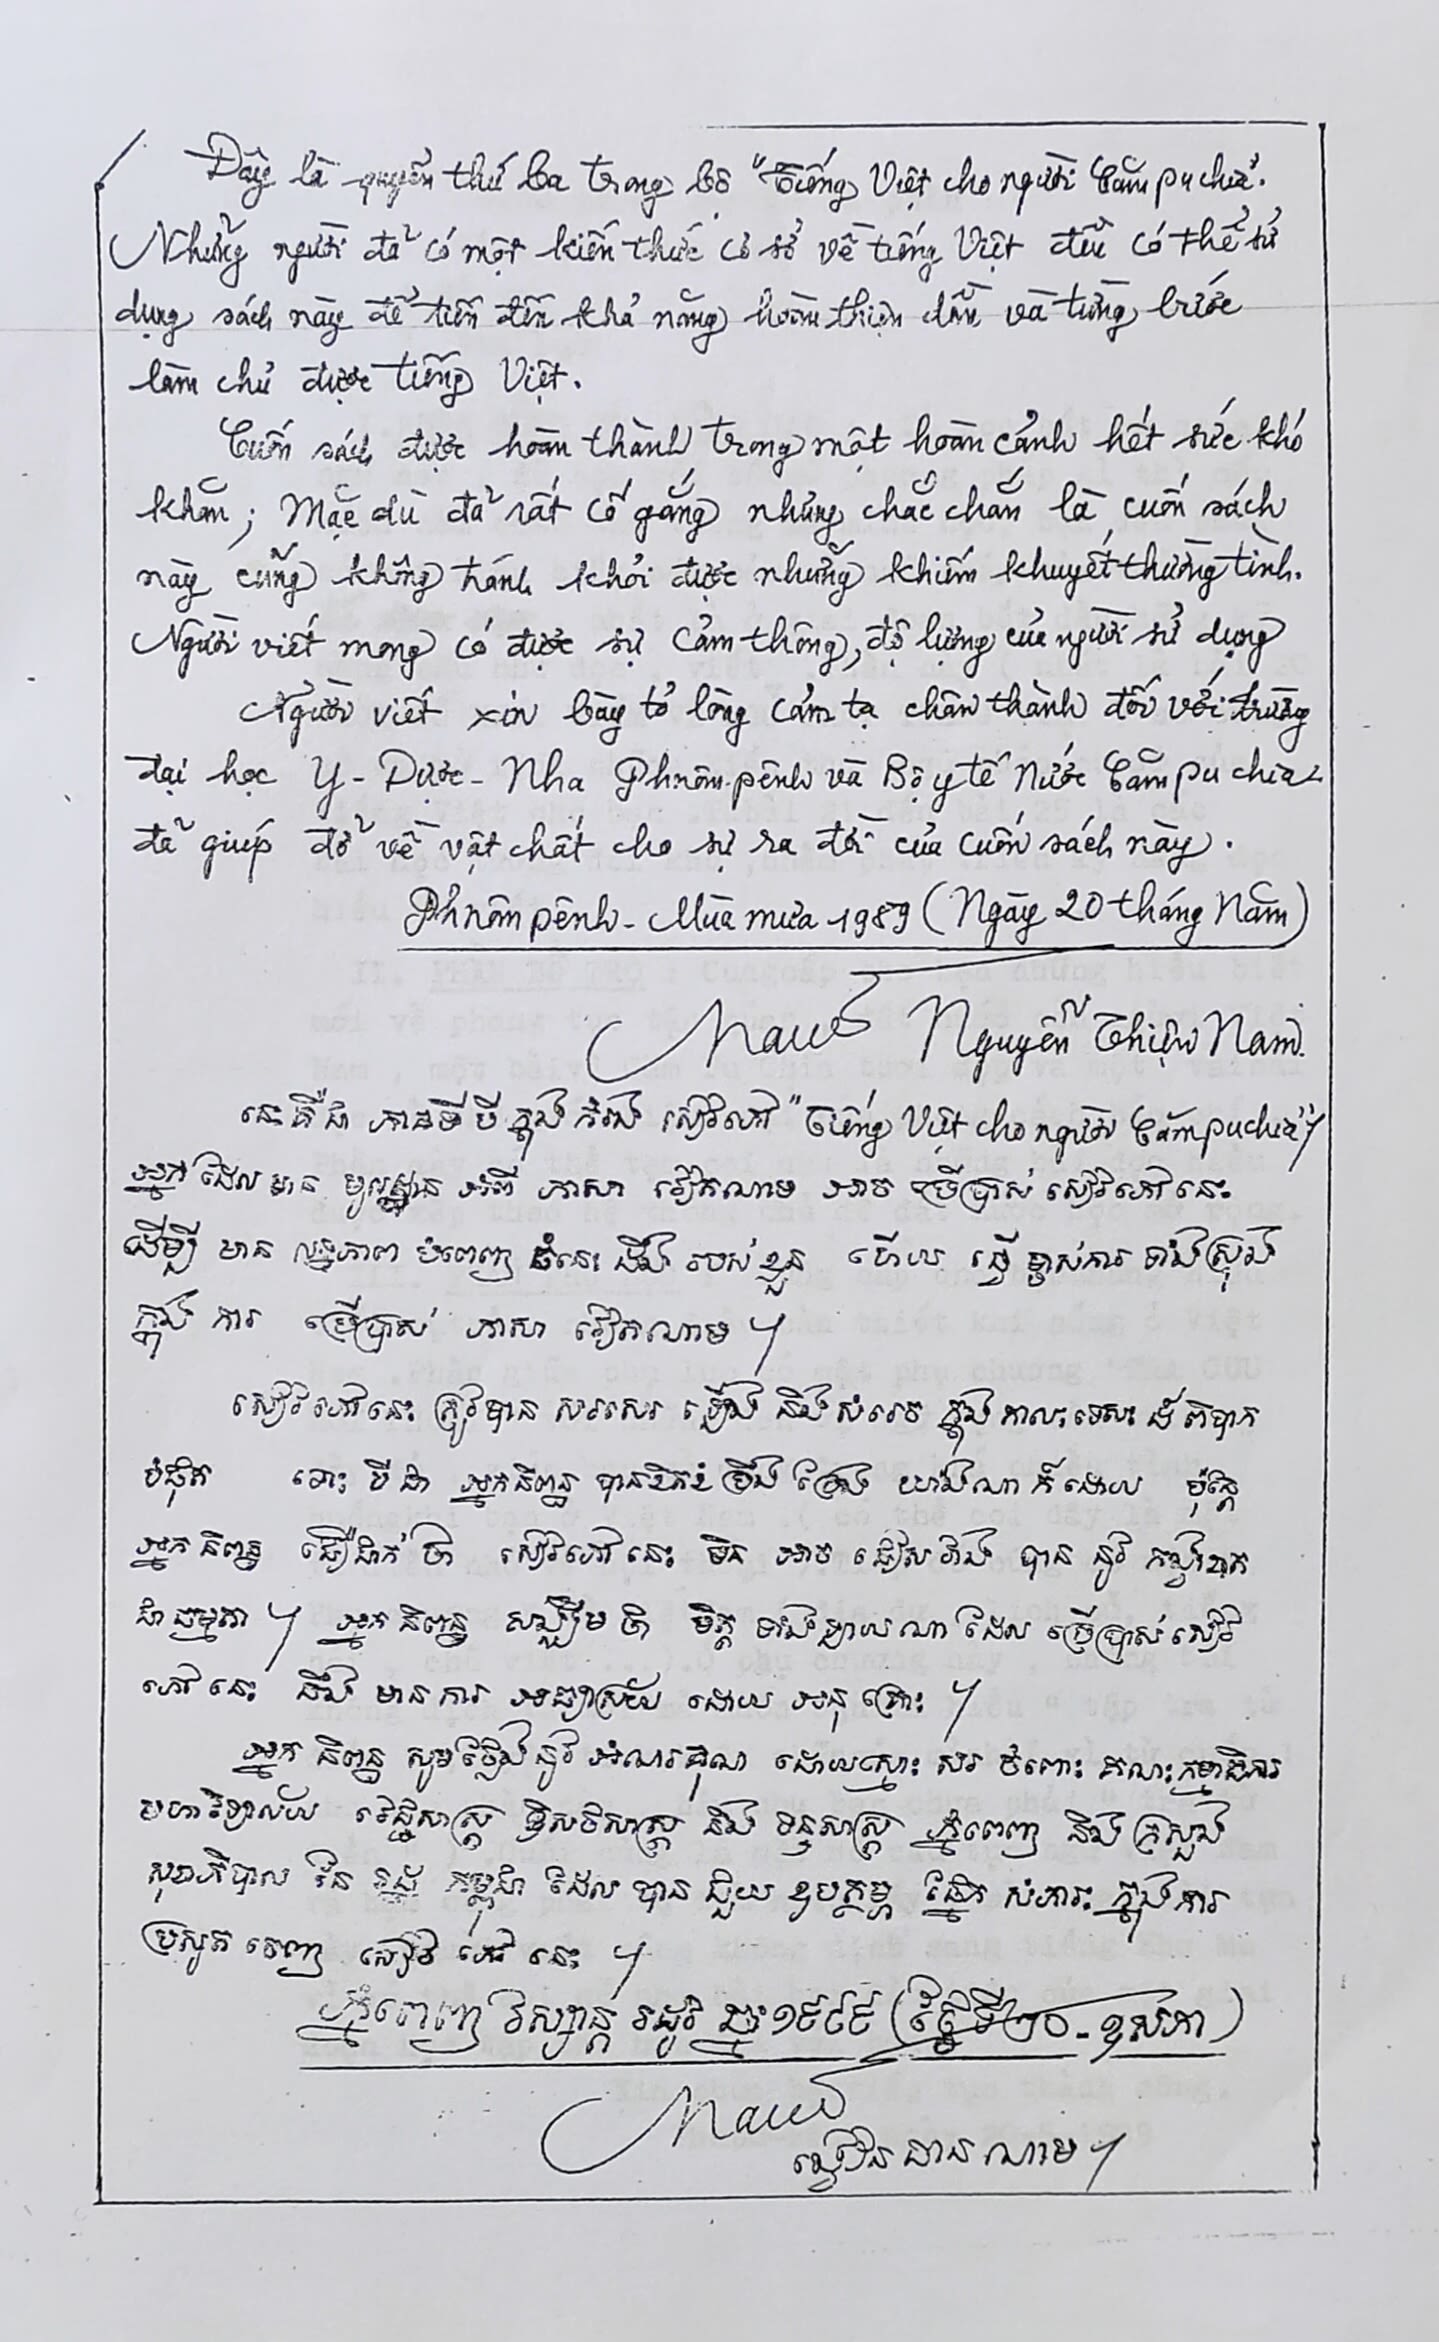 Đây là quyển thứ ba trong bộ "Tiếng Việt cho người Cămpuchia".
Những người đã có một kiến thức cơ sở về tiếng Việt đều có thể sử
dụng sách này để tiến đến khả năng hoàn thiện dần và từng bước
làm chủ được tiếng Việt.
Cuốn sách được hoàn thành trong một hoàn cảnh hết sức khó
khăn; Mặc dù đã rất cố gắng nhưng chắc chắn là cuốn sách
này cũng không tránh khỏi được những khiếm khuyết thường tình.
Người viết mong có được sự cảm thông, độ lượng của người sử dụng
Người viết xin bày tỏ lòng cảm tạ chân thành đối với trường
đại học Y - Dược - Nha Phnôm-pênh và Bộ y tế Nước Cămpuchia
đã giúp đỡ về vật chất cho sự ra đời của cuốn sách này.
Phnôm pênh - Mùa mưa 1989 (Ngày 20 tháng Năm)
Nam Nguyễn Thiện Nam.
នេះគឺជា ភាគទី បី ក្នុង កំរង សៀវភៅ "Tiếng Việt cho người Cămpuchia"។
អ្នក ដែល មាន មូលដ្ឋាន អំពី ភាសា វៀតណាម អាច ប្រើប្រាស់ សៀវភៅ នេះ
ដើម្បី មាន លទ្ធភាព បំពេញ ចំនេះ ដឹង របស់ ខ្លួន ហើយ ធ្វើ ម្ចាស់ការ ទាំងស្រុង
ក្នុង ការ ប្រើប្រាស់ ភាសា វៀតណាម ។
សៀវភៅនេះ ត្រូវបាន សរសេរ ឡើង និងសំរេច ក្នុង កាលៈទេសៈ ដ៏ ពិបាក
បំផុត ទោះ បី ជា អ្នកនិពន្ធ បានខិតខំ ប្រឹង ប្រែង យ៉ាងណា ក៏ ដោយ ប៉ុន្តែ
អ្នក និពន្ធ ជឿជាក់ ថា សៀវភៅ នេះ មិន អាច ជៀស វាង បាន នូវ កង្វះខាត
ជា ធម្មតា ។ អ្នក និពន្ធ សង្ឃឹម ថា មិត្ត ទាំងឡាយ ណា ដែល ប្រើប្រាស់ សៀវ
ភៅ នេះ នឹង មានការ អធ្យាស្រ័យ ដោយ អនុគ្រោះ ។
អ្នក និពន្ធ សូមថ្លែង នូវ អំណរគុណ ដោយស្មោះ សរ ចំពោះ គណៈកម្មាធិការ
មហាវិទ្យាល័យ វេជ្ជសាស្ត្រ ឱសថសាស្ត្រ និង ទន្តសាស្ត្រ ភ្នំពេញ និង ក្រសួង
សុខាភិបាល នៃ រដ្ឋ កម្ពុជា ដែល បាន ជួយ ឧបត្ថម្ភ ផ្នែក សំភារៈ ក្នុង ការ
ប្រសូត ចេញ សៀវ ភៅ នេះ ។
ភ្នំពេញ វស្សាន្ត រដូវ ឆ្នាំ ១៩៨៩ (ថ្ងៃទី២០ - ឧសភា)
Nam
ង្វៀន ធាន ណាម ។